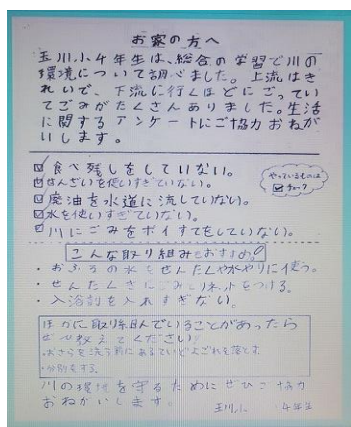 お家の方へ
玉川小4年生は、総合の学習で川の
環境について調べました。上流はき
れいで、下流に行くほどにごってい
てごみがたくさんありました。生活
に関するアンケートにご協力おねが
いします。
☑食べ残しをしていない。
☑せんざいを使いすぎていない。
☑廃油を水道に流していない。
☑水を使いすぎていない。
☑川にごみをポイすてをしていない。
やっているものは
☑チェック
こんな取り組みもおすすめ!
・おふろの水をせんたくや水やりに使う。
・せんたくきにごみとりネットをつける。
・入浴剤を入れすぎない。
ほかに取り組んでいることがあったら
ぜひ教えてください。
・おさらを洗う前にあるていどよごれを落とす。
・分別をする。
川の環境を守るためにぜひご協力
おねがいします。
玉川小 4年生